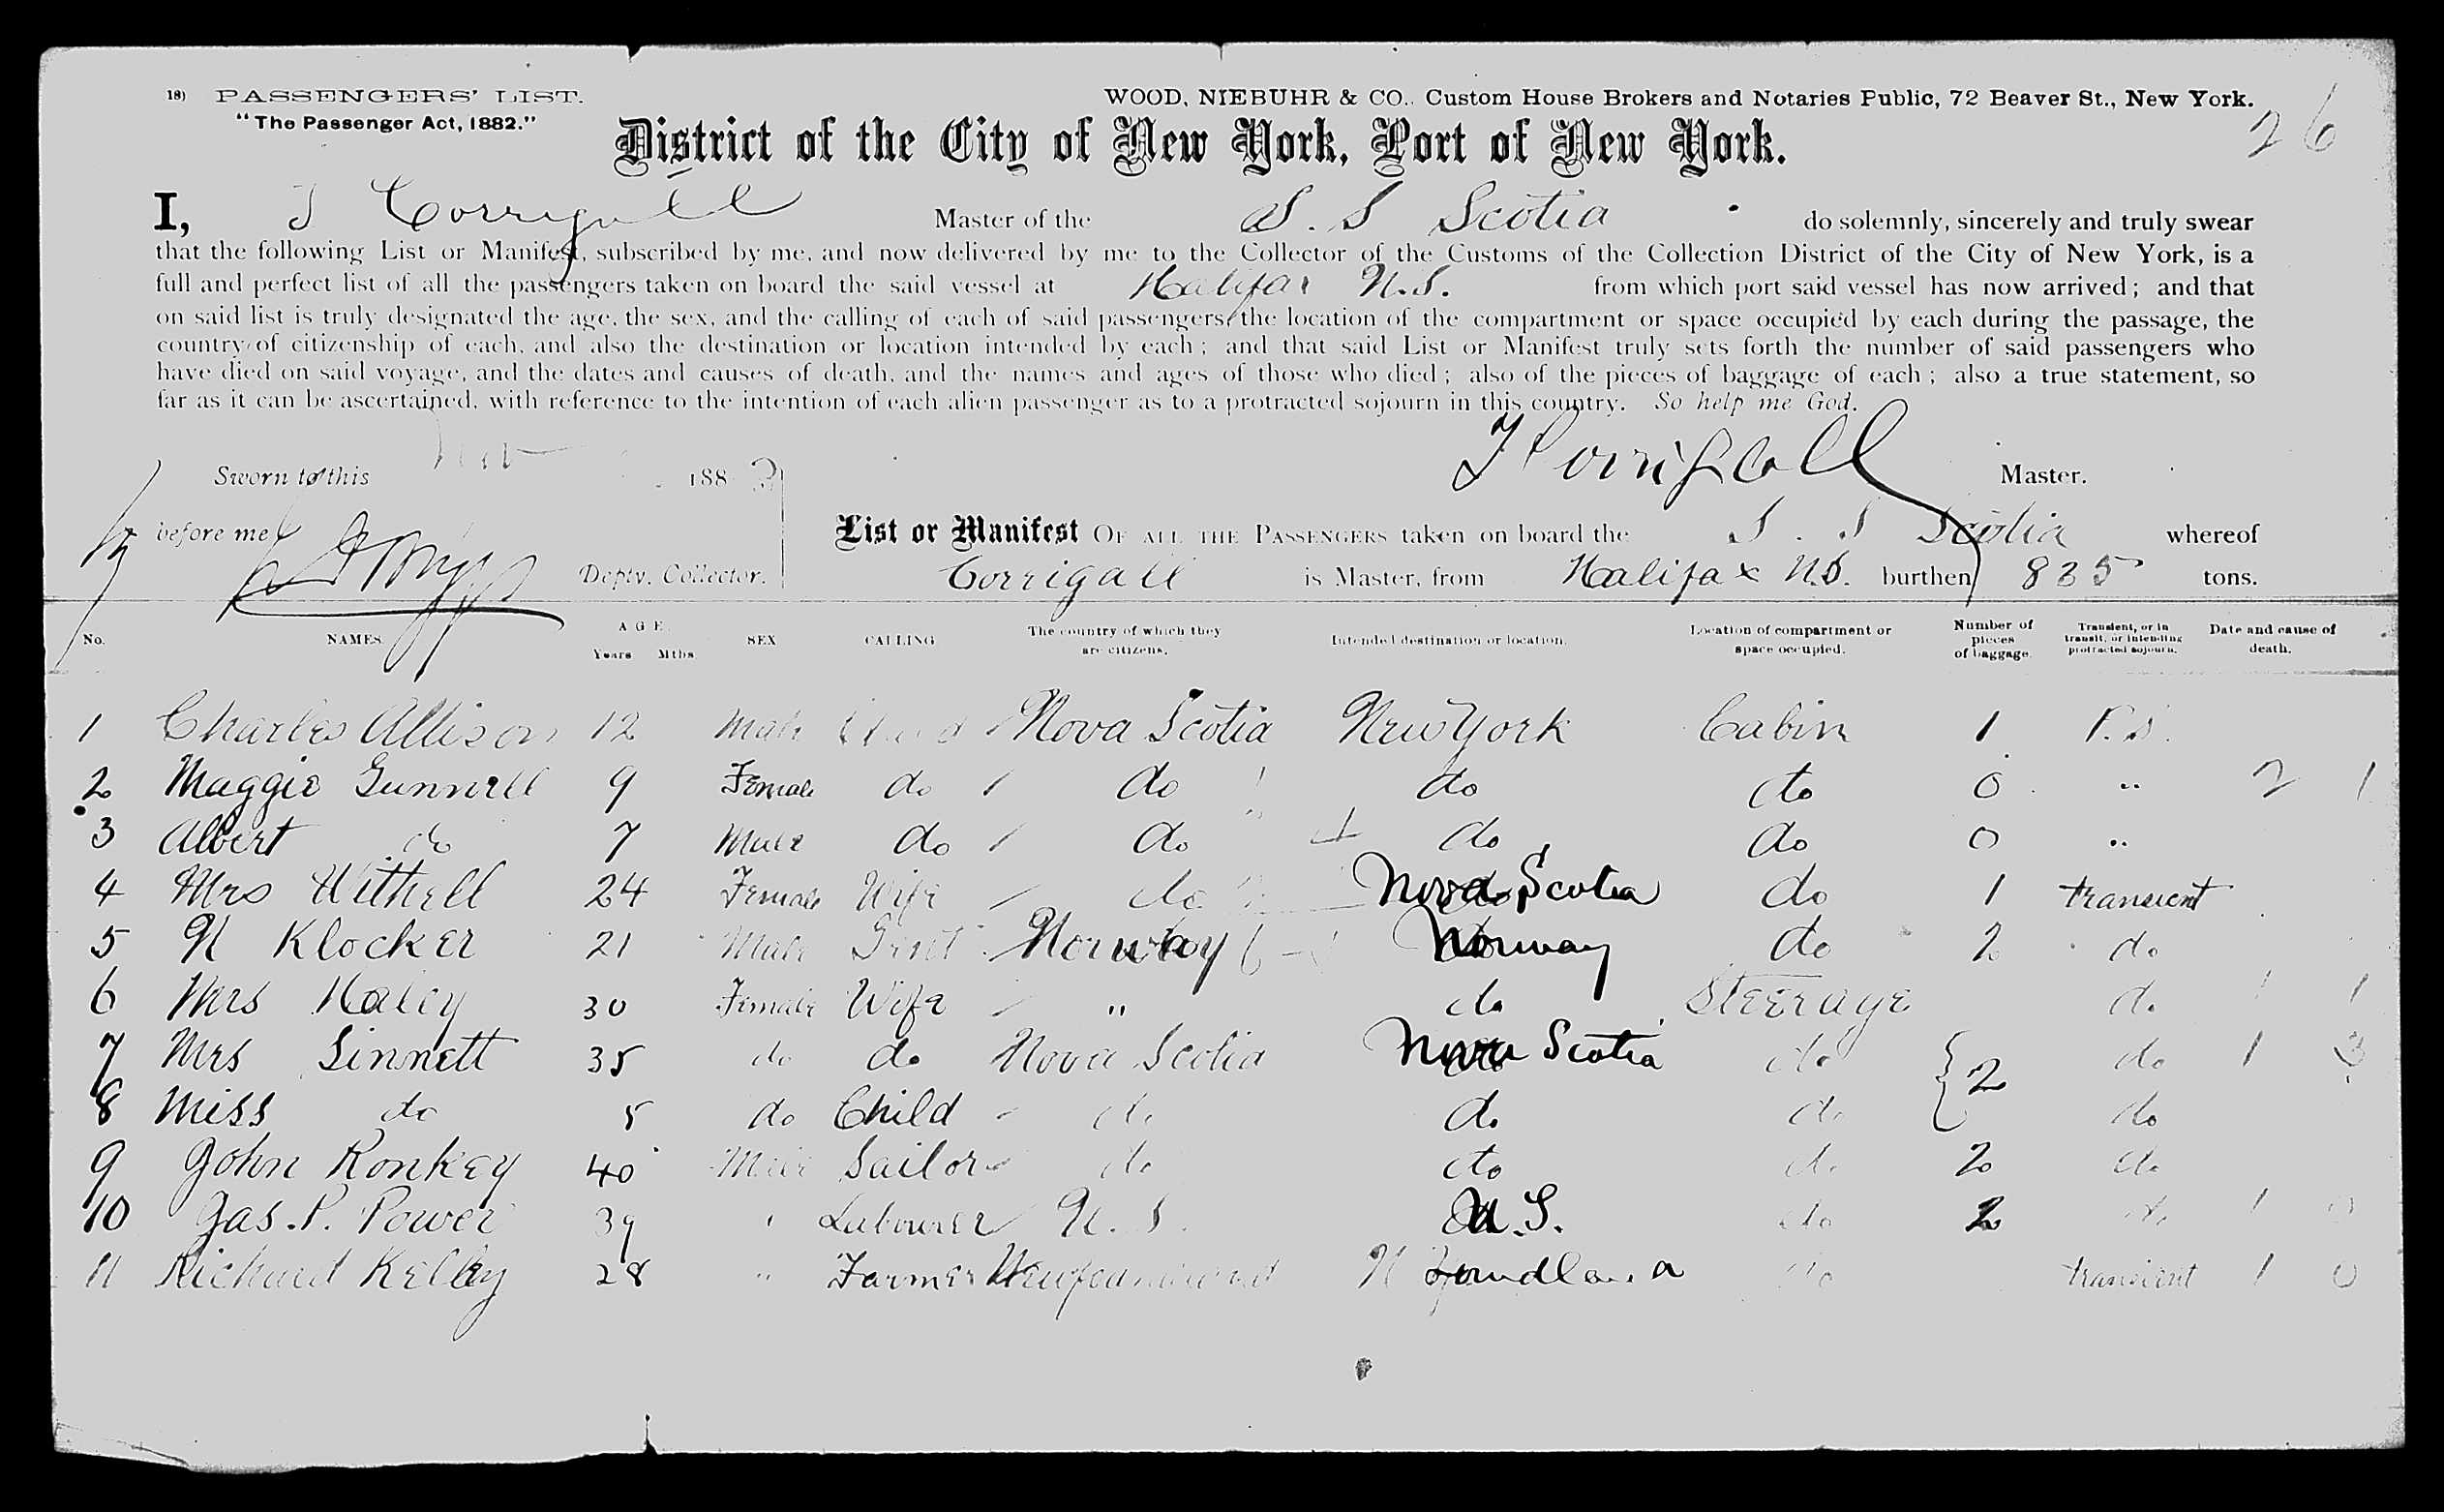 18) PASSENGERS' LIST. WOOD, NIEBUHR & CO., Custom House Brokers and Notaries Public, 72 Beaver St., New York.
"The Passenger Act, 1882." 26
District of the City of New York, Port of New York.
I, J Corrigall Master of the S. S Scotia do solemnly, sincerely and truly swear
that the following List or Manifest, subscribed by me, and now delivered by me to the Collector of the Customs of the Collection District of the City of New York, is a
full and perfect list of all the passengers taken on board the said vessel at Halifax N.S. from which port said vessel has now arrived; and that
on said list is truly designated the age, the sex, and the calling of each of said passengers, the location of the compartment or space occupied by each during the passage, the
country of citizenship of each, and also the destination or location intended by each; and that said List or Manifest truly sets forth the number of said passengers who
have died on said voyage, and the dates and causes of death, and the names and ages of those who died; also of the pieces of baggage of each; also a true statement, so
far as it can be ascertained, with reference to the intention of each alien passenger as to a protracted sojourn in this country. So help me God.
Sworn to this Nov 1883 J Corrigall Master.
before me
List or Manifest OF ALL THE PASSENGERS taken on board the S. S Scotia whereof
Depty. Collector. Corrigall is Master, from Halifax N.S. burthen 835 tons.
No. NAMES. AGE. Years Mths. SEX CALLING The country of which they are citizens. Intended destination or location. Location of compartment or space occupied. Number of pieces of baggage. Transient, or in transit, or intending protracted sojourn. Date and cause of death.
1 Charles Allison 12 Male Child Nova Scotia New York Cabin 1 P.S.
2 Maggie Gunnell 9 Female do do do do 0 " 2 1
3 Albert do 7 Male do do do do 0 "
4 Mrs Withell 24 Female Wife do Nova Scotia do 1 transient
5 N Klocker 21 Male Gent Norway Norway do 2 do
6 Mrs Haley 30 Female Wife " do Steerage do 1 1
7 Mrs Sinnett 35 do do Nova Scotia Nova Scotia do 2 do 1 3
8 Miss do 5 do Child do do do do
9 John Ronkey 40 Male Sailor do do do 2 do
10 Jas. P. Power 39 " Labourer U.S. U.S. do 2 do 1 0
11 Richard Kelley 28 " Farmer Newfoundland N Foundland do transient 1 0